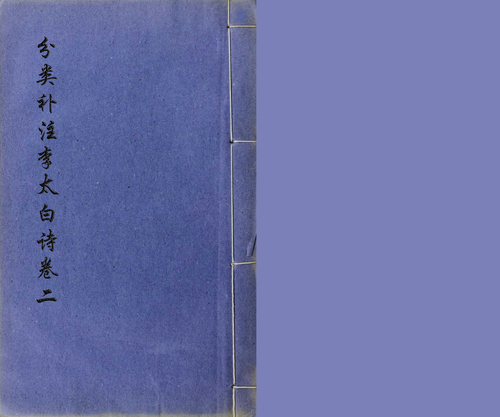 分类补注李太白诗卷二